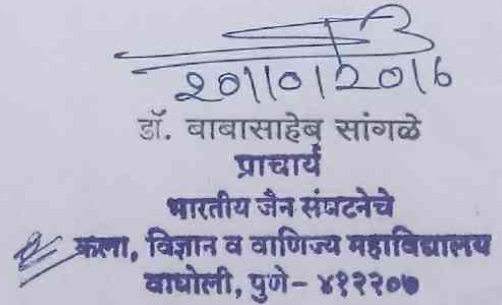 20/10/2016
डॉ. बाबासाहेब सांगळे
प्राचार्य
भारतीय जैन संघटनेचे
कला, विज्ञान व वाणिज्य महाविद्यालय
वाघोली, पुणे- ४१२२०७